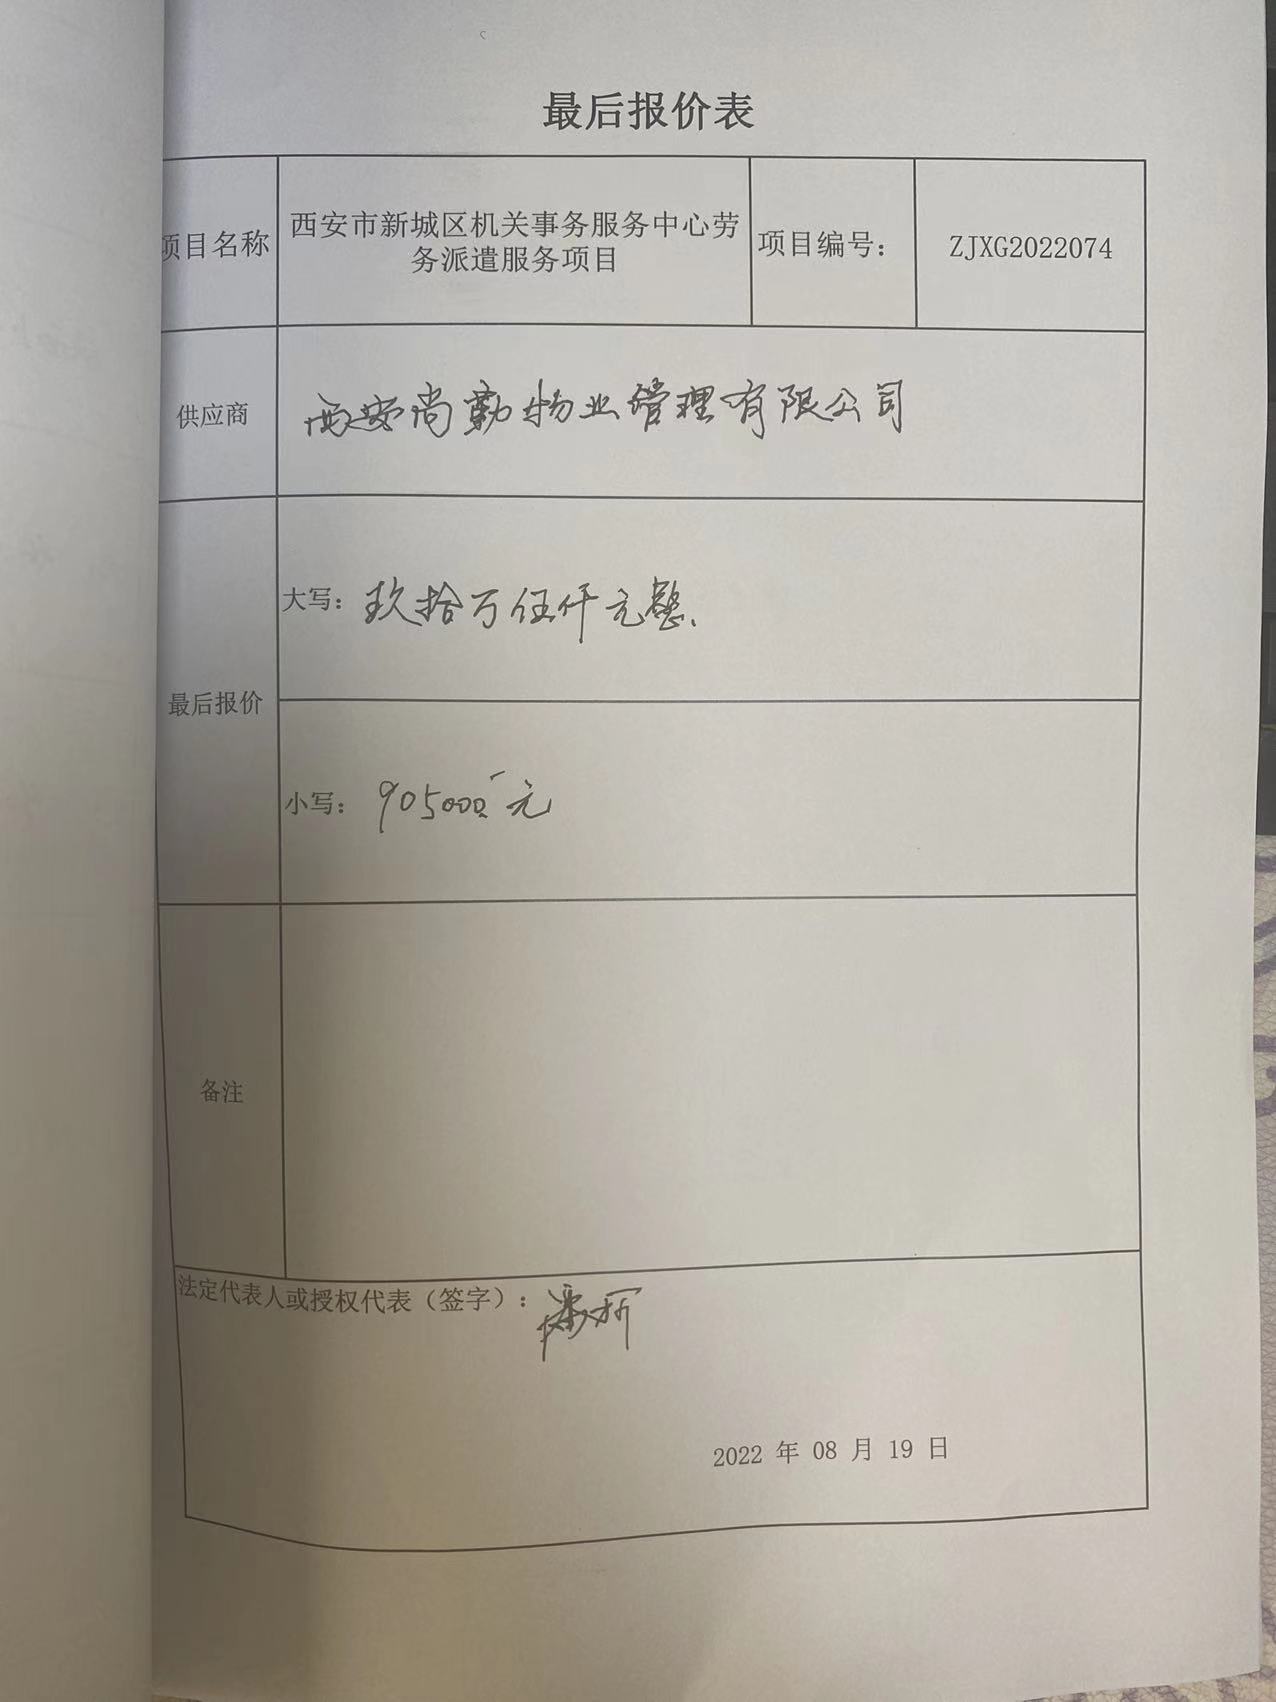 最后报价表
项目名称
西安市新城区机关事务服务中心劳
务派遣服务项目
项目编号：
ZJXG2022074
供应商
西安尚勤物业管理有限公司
最后报价
大写：玖拾万伍仟元整.
小写：905000元
备注
法定代表人或授权代表（签字）：
2022 年 08 月 19 日